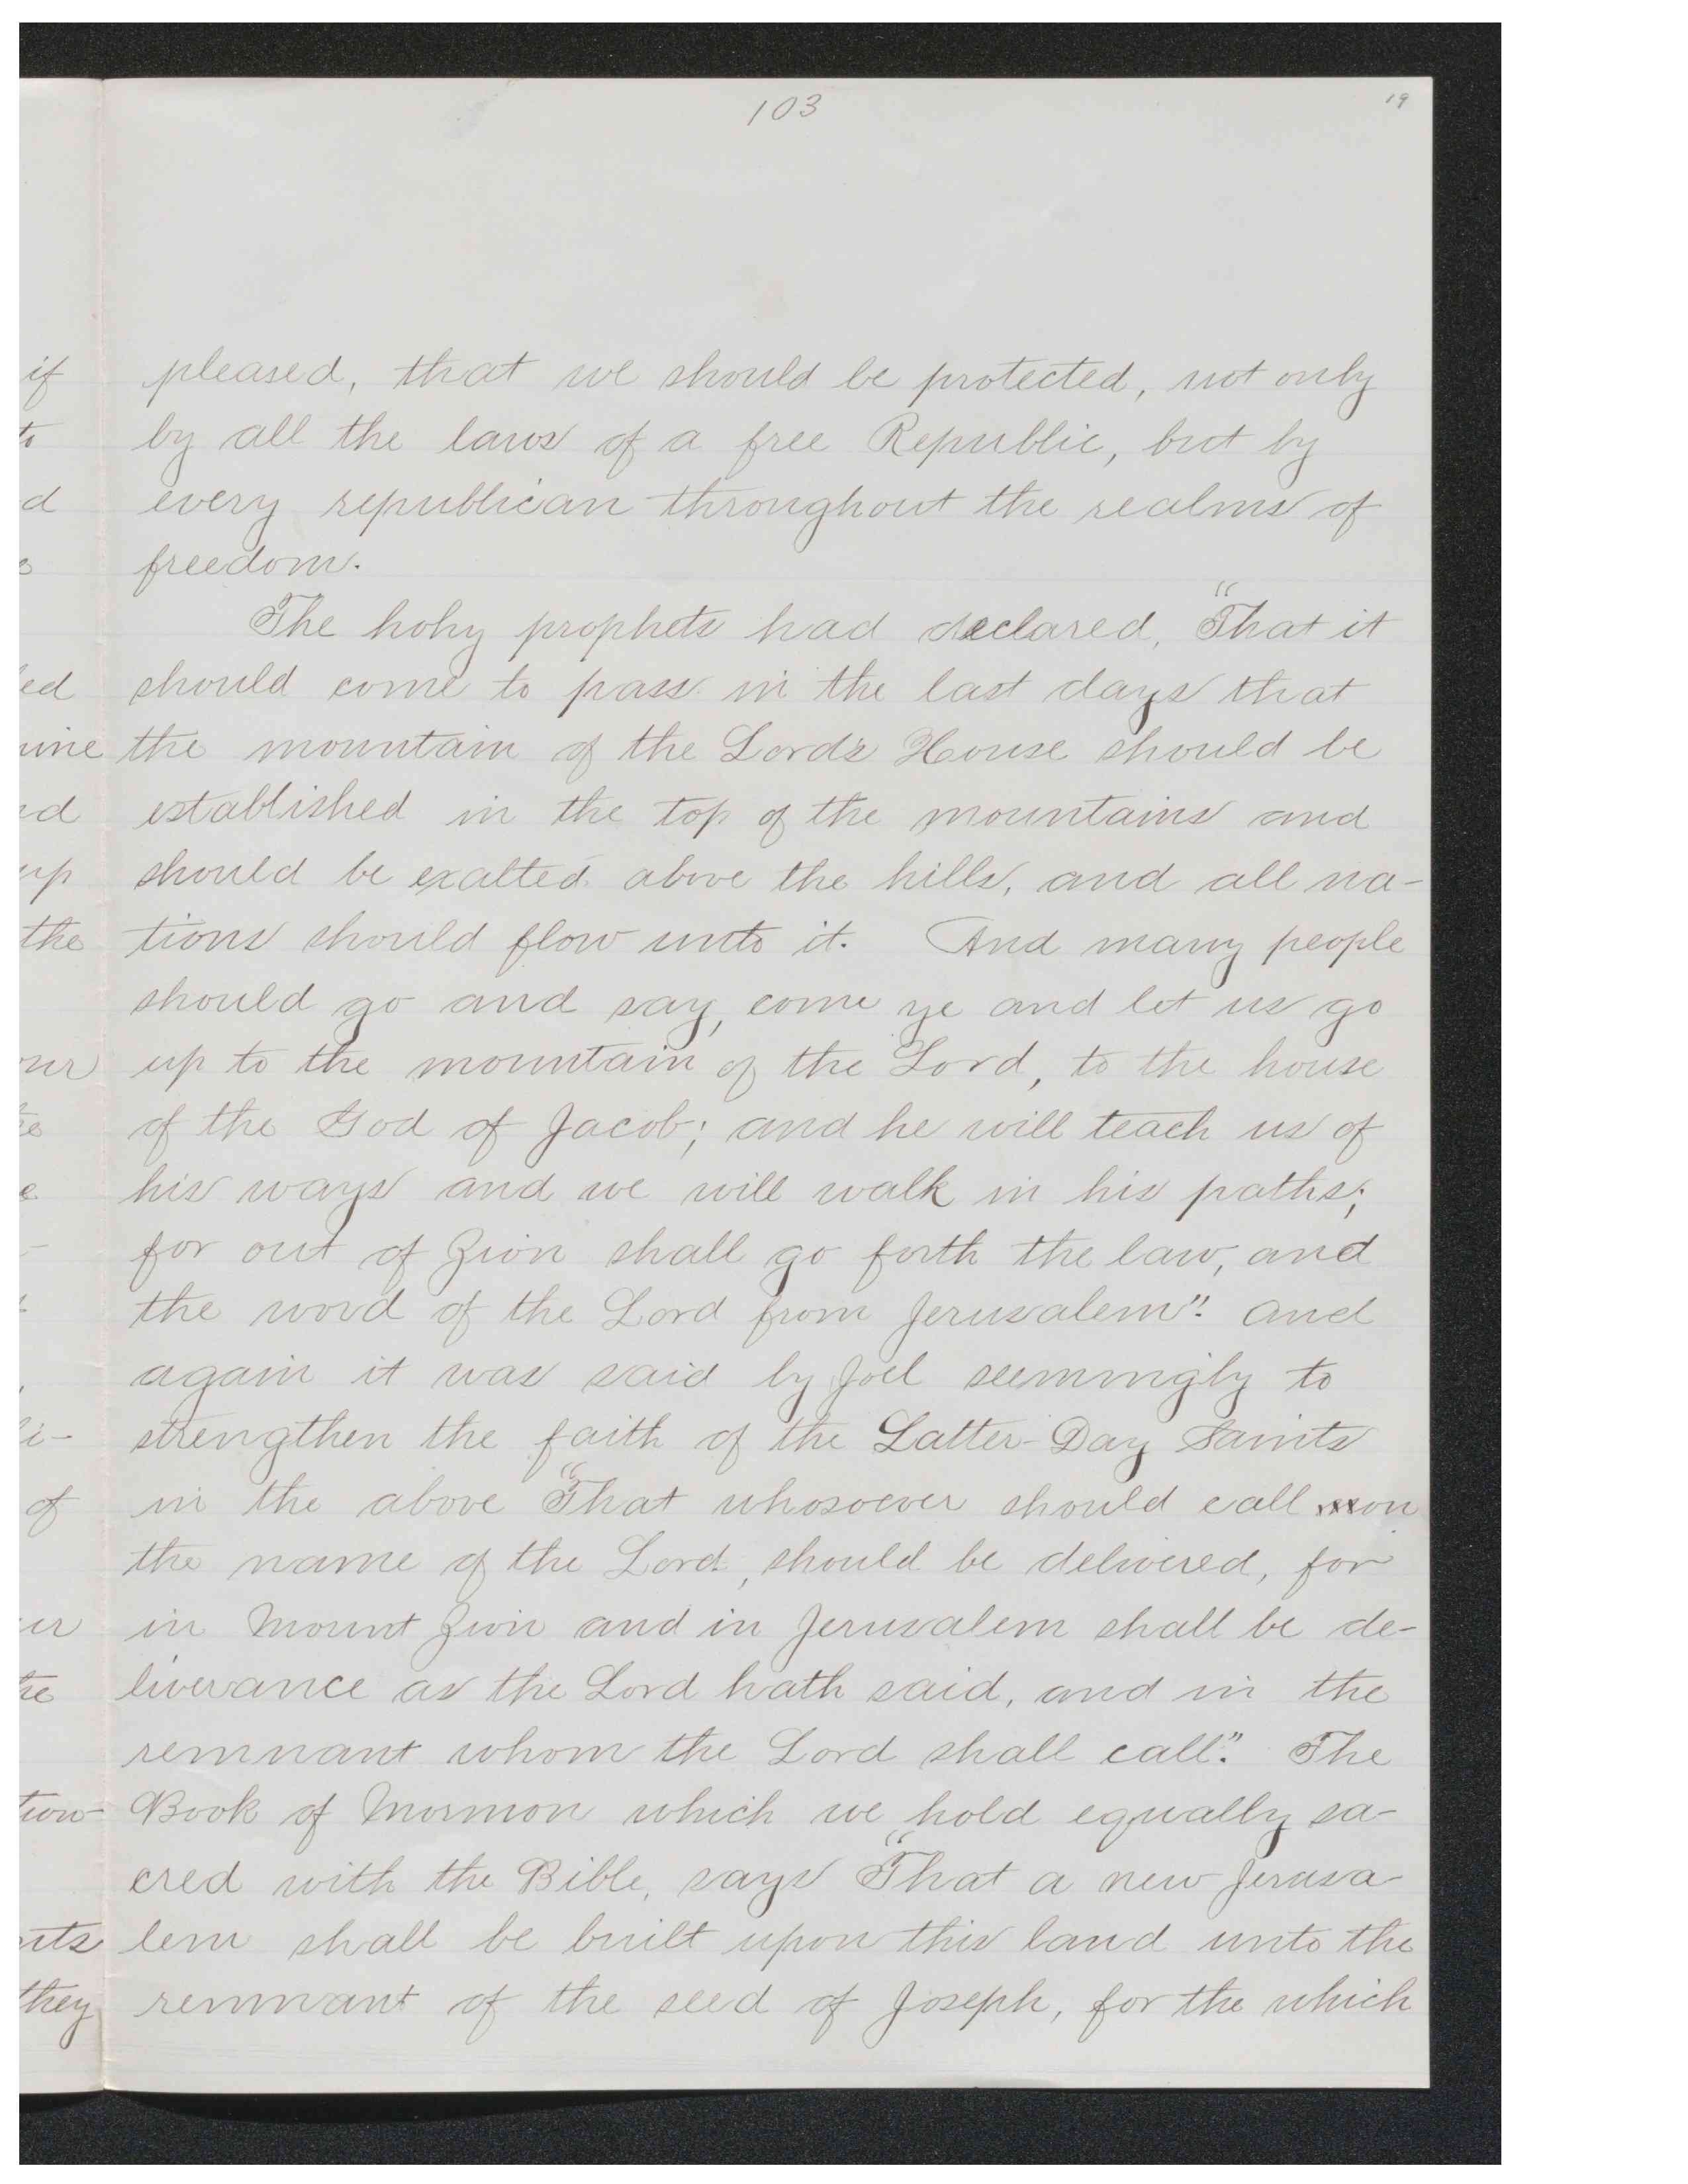 103
19
pleased, that we should be protected, not only
by all the laws of a free Republic, but by
every republican throughout the realms of
freedom.
The holy prophets had declared, "That it
should come to pass in the last days that
the mountain of the Lord's House should be
established in the top of the mountains and
should be exalted above the hills, and all na-
tions should flow unto it. And many people
should go and say, come ye and let us go
up to the mountain of the Lord, to the house
of the God of Jacob; and he will teach us of
his ways and we will walk in his paths;
for out of Zion shall go forth the law, and
the word of the Lord from Jerusalem". And
again it was said by Joel seemingly to
strengthen the faith of the Latter-Day Saints
in the above "That whosoever should call on
the name of the Lord, should be delivered, for
in Mount Zion and in Jerusalem shall be de-
liverance as the Lord hath said, and in the
remnant whom the Lord shall call". The
Book of Mormon which we hold equally sa-
cred with the Bible, says "That a new Jerusa-
lem shall be built upon this land unto the
remnant of the seed of Joseph, for the which
if
to
d
s
ed
ine
d
up
the
ur
e
e
-
i-
of
er
re
tion-
nts
they